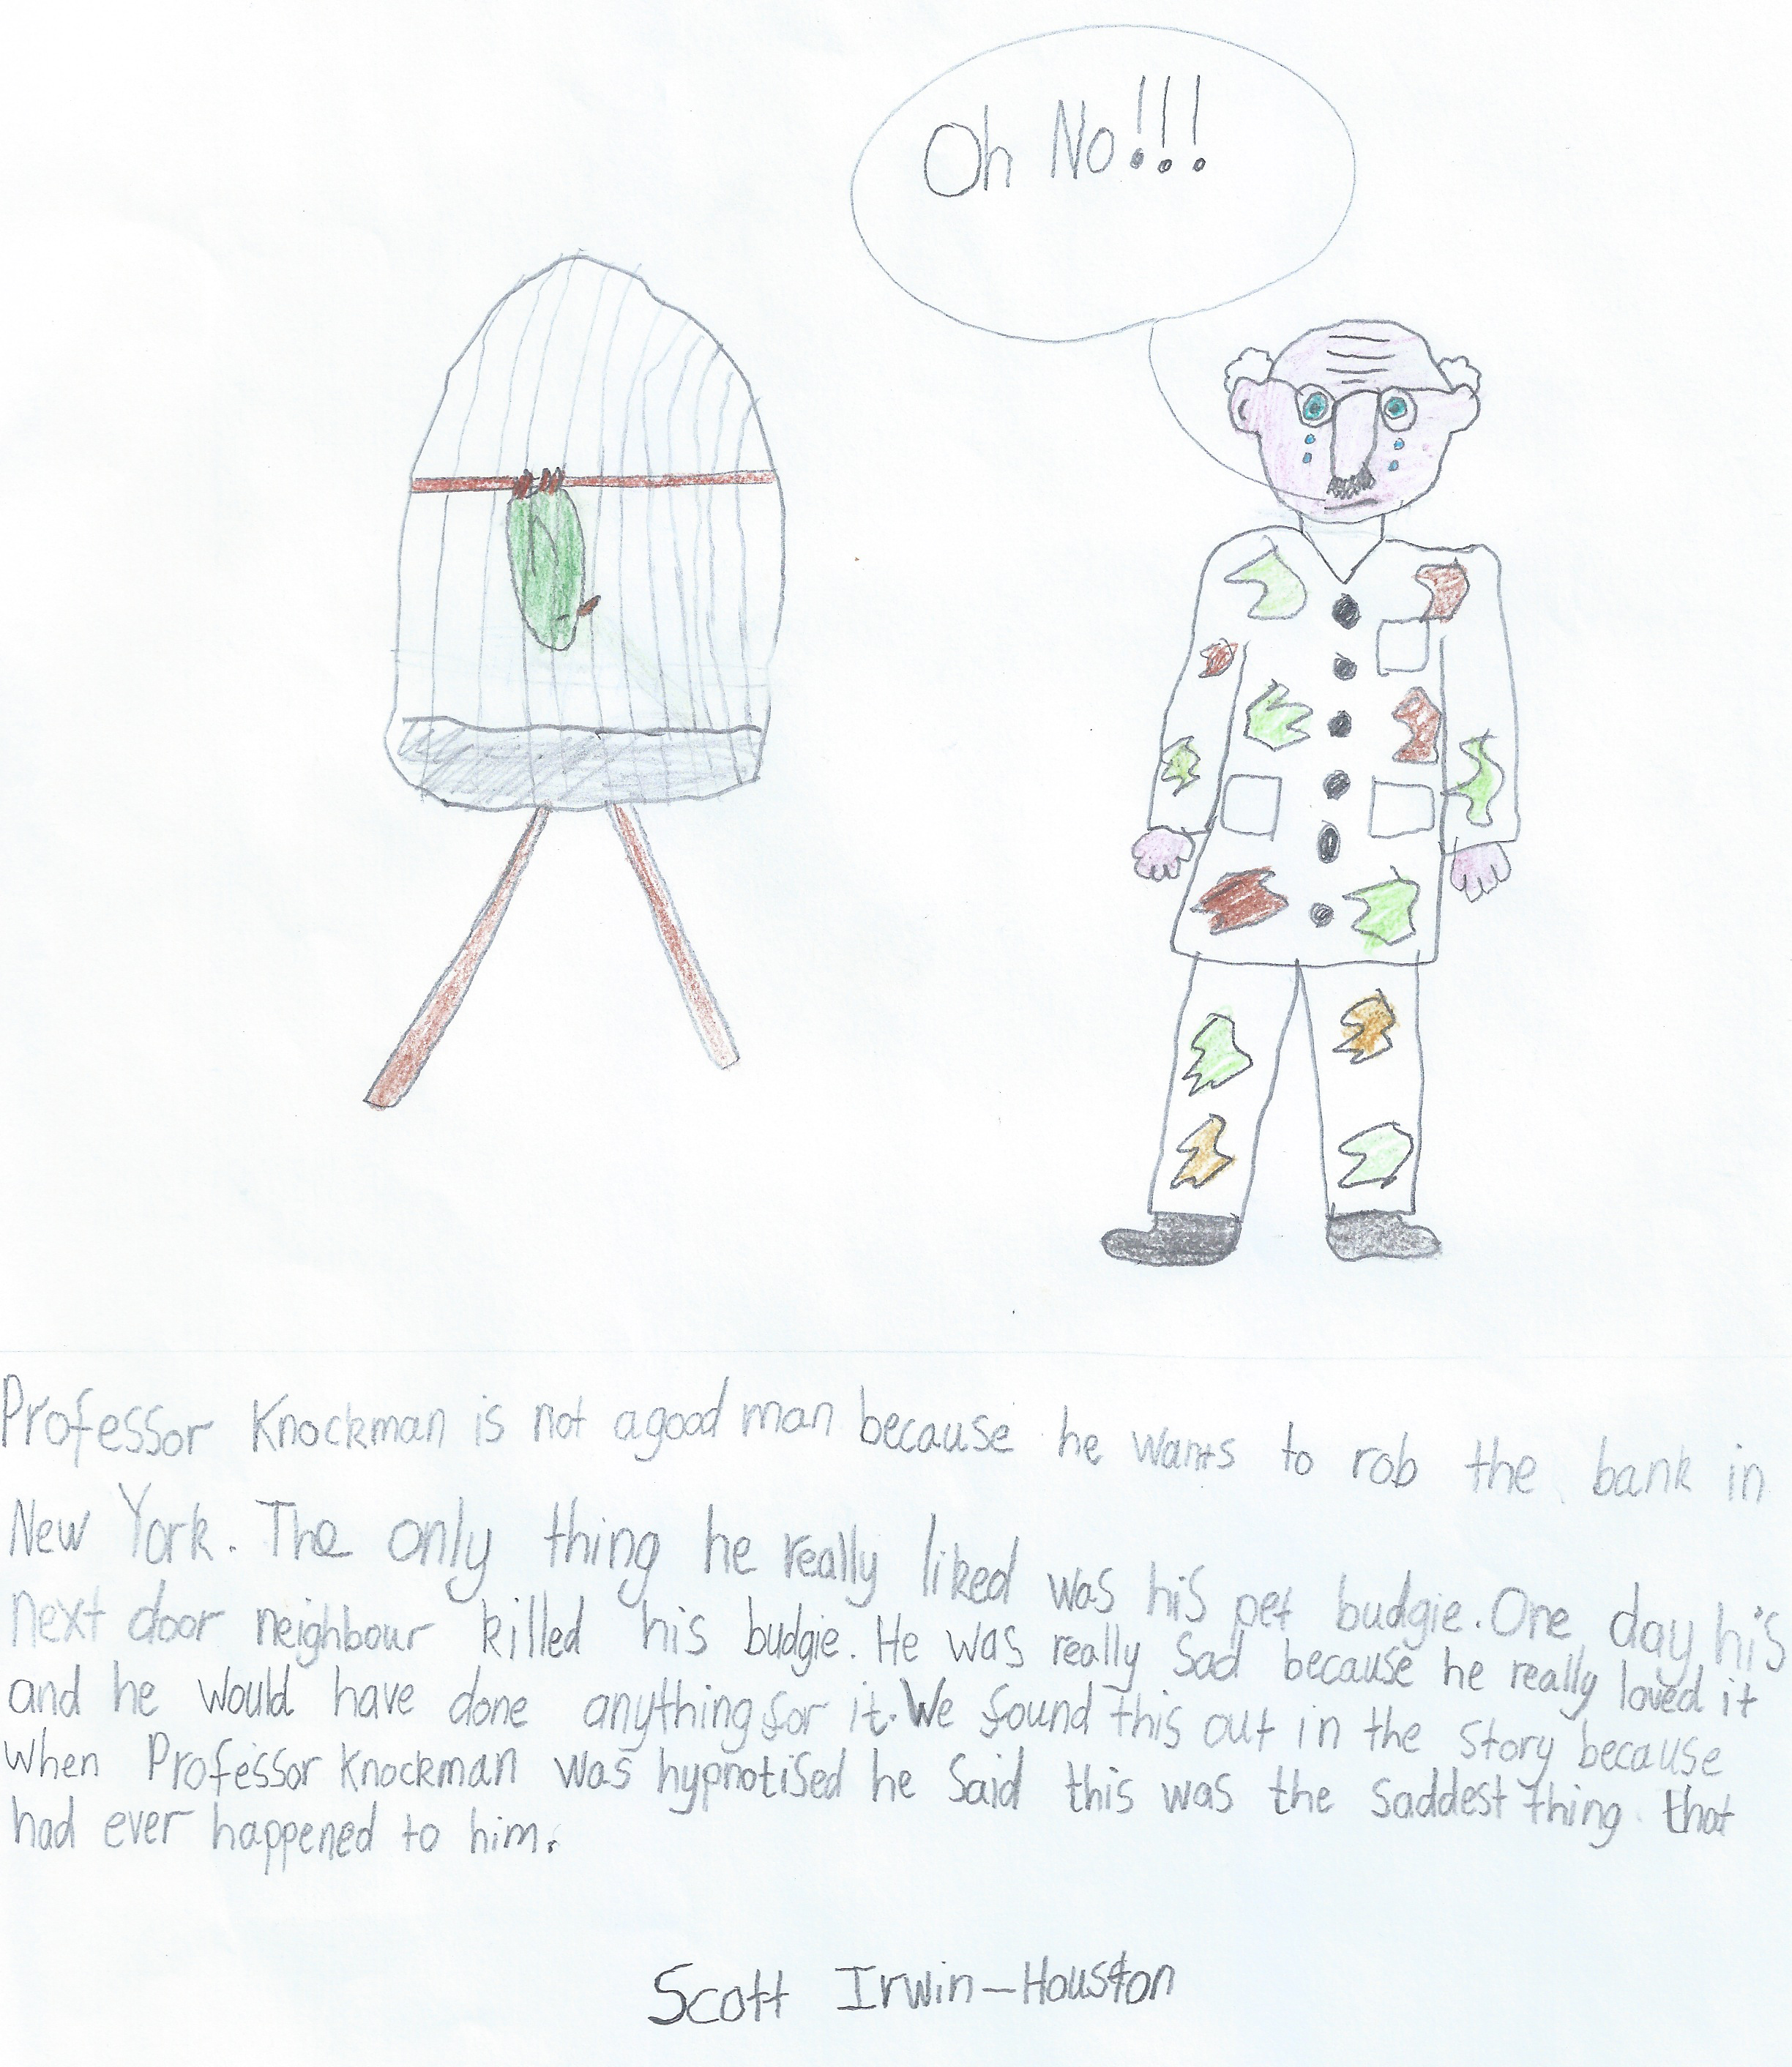 Oh No!!!
Professor Knockman is not a good man because he wants to rob the bank in
New York. The only thing he really liked was his pet budgie. One day his
next door neighbour killed his budgie. He was really sad because he really loved it
and he would have done anything for it. We found this out in the story because
when Professor Knockman was hypnotised he said this was the saddest thing that
had ever happened to him.
Scott Irwin-Houston